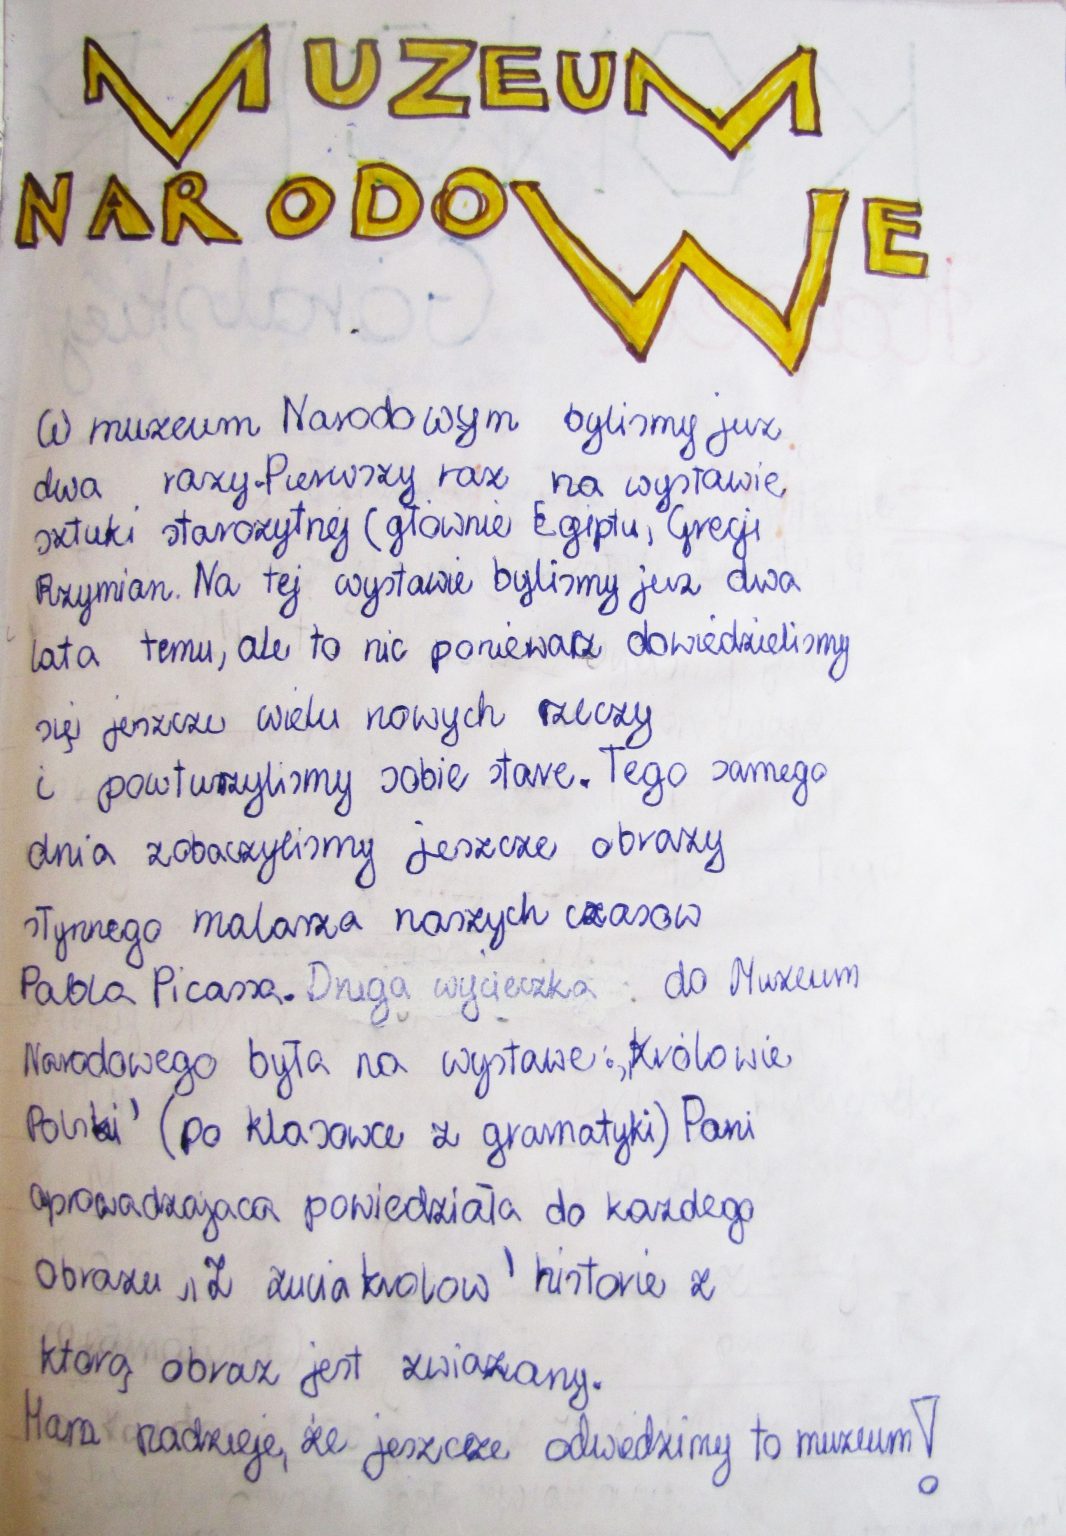 MUZEUM
NARODOWE
W muzeum Narodowym bylismy juz
dwa razy. Pierwszy raz na wystawie
sztuki starozytnej (głównie Egiptu, Grecji
Rzymian. Na tej wystawie bylismy juz dwa
lata temu, ale to nic poniewarz dowiedzielismy
się jeszcze wielu nowych rzeczy
i powtuzylismy sobie stare. Tego samego
dnia zobaczylismy jeszcze obrazy
słynnego malarza naszych czasow
Pabla Picassa. Druga wycieczka do Muzeum
Narodowego była na wystawe: „Królowie
Polski" (po klasowce z gramatyki) Pani
oprowadzajaca powiedziała do kazdego
obrazu „Z zucia krolow" historie z
ktorą obraz jest zwiazany.
Mam nadzieje, że jeszcze odwedzimy to muzeum!